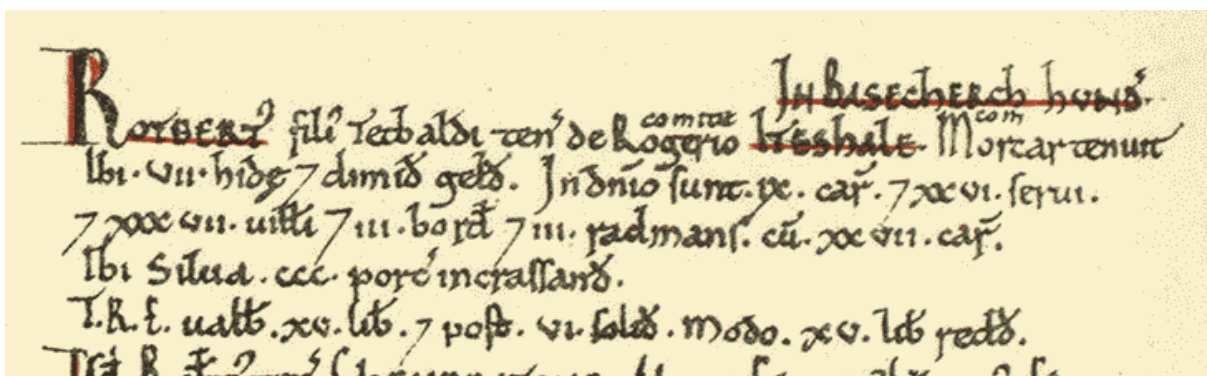 In BISECHERCH HVND'.
ROTBERT' fili' Tetbaldi ten' de Rogerio comitat ITESHALE. Morcar com tenuit
Ibi. VII. hidę 7 dimid geld. In dnio sunt. IX. car. 7 XXVI. serui.
7 XXXVII. uilli 7 III. bord 7 III. radmans. cu. XXVII. car.
Ibi Silua. CCC. porc' incrassand.
T.R.E. ualb. XV. lib. 7 post. VI. solid. Modo. XV. lib redd.